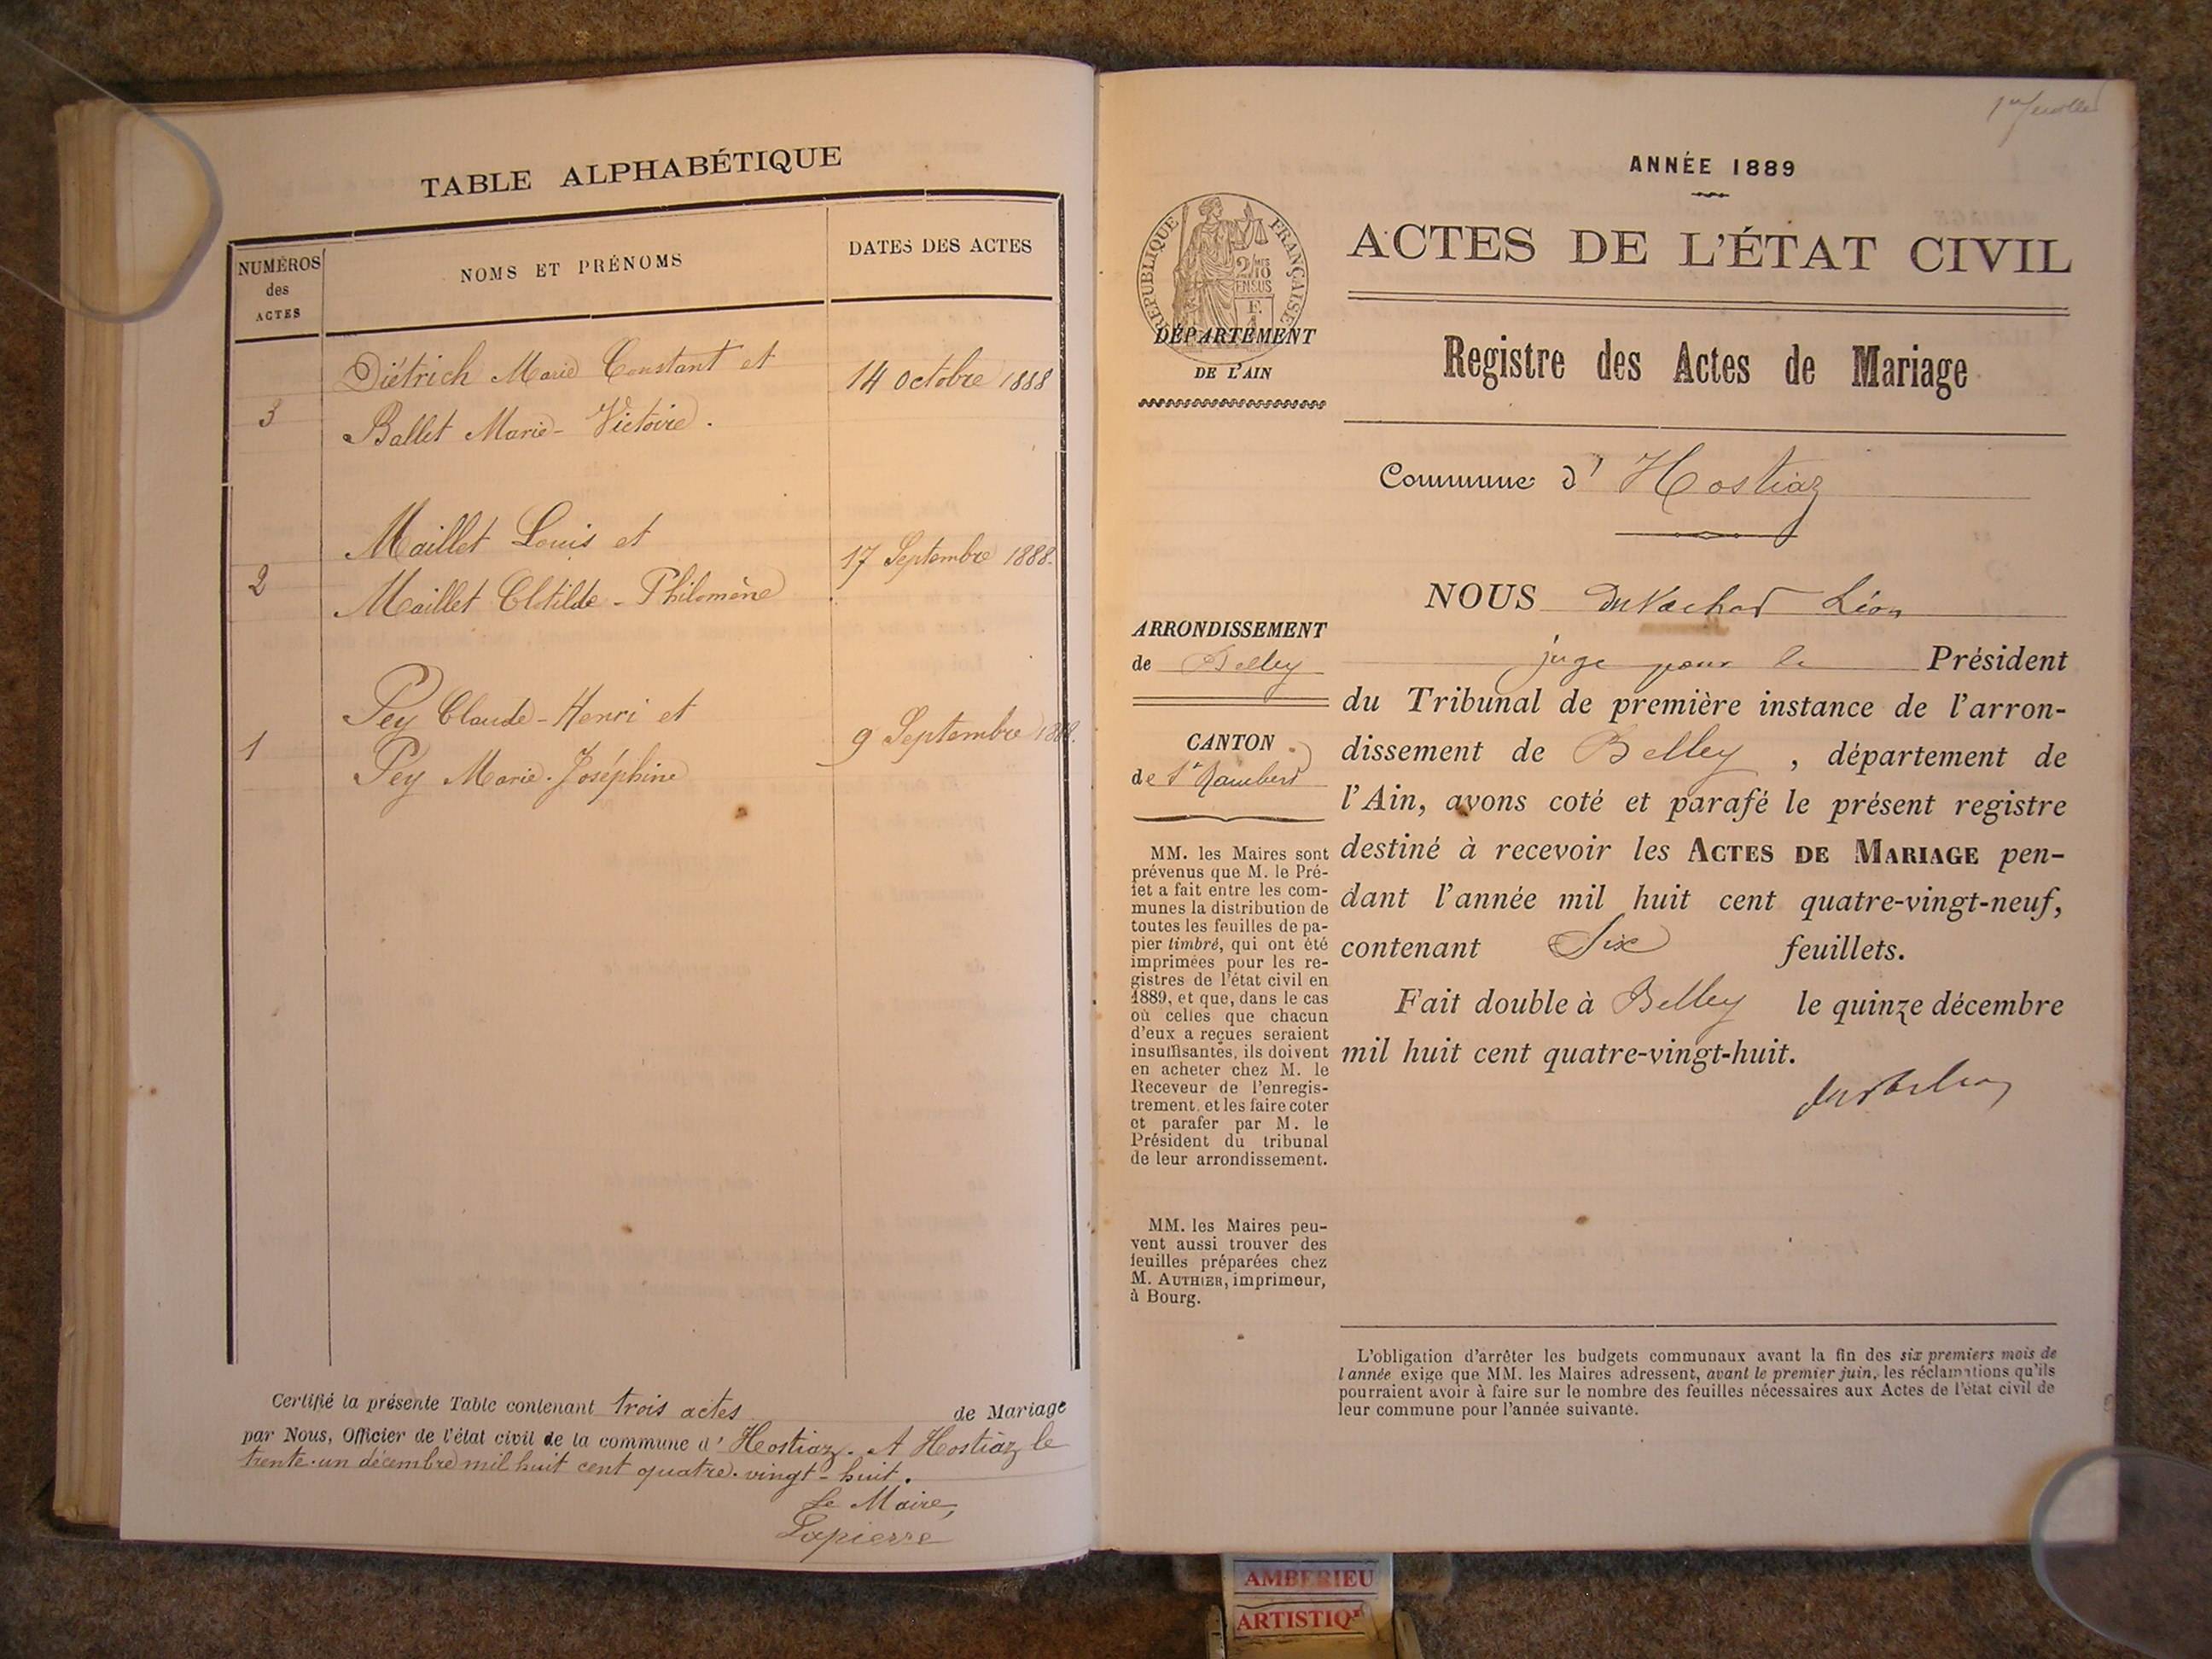 TABLE ALPHABÉTIQUE
NUMÉROS
des
ACTES
NOMS ET PRÉNOMS
DATES DES ACTES
Diétrich Marie Constant et
14 octobre 1888
3
Ballet Marie-Victoire.
Maillet Louis et
17 Septembre 1888.
2
Maillet Clotilde-Philomène
Pey Claude-Henri et
9 Septembre 1888.
1
Pey Marie-Joséphine
Certifié la présente Table contenant trois actes de Mariage
par Nous, Officier de l'état civil de la commune d'Hostiaz. A Hostiaz le
trente-un décembre mil huit cent quatre-vingt-huit.
Le Maire,
Lapierre
1er feuillet
ANNÉE 1889
ACTES DE L'ÉTAT CIVIL
RÉPUBLIQUE FRANÇAISE
2/10
EN SUS
DÉPARTEMENT
DE L'AIN
Registre des Actes de Mariage
Commune d'Hostiaz
ARRONDISSEMENT
de Belley
CANTON
de St Rambert
MM. les Maires sont
prévenus que M. le Pré-
fet a fait entre les com-
munes la distribution de
toutes les feuilles de pa-
pier timbré, qui ont été
imprimées pour les re-
gistres de l'état civil en
1889, et que, dans le cas
où celles que chacun
d'eux a reçues seraient
insuffisantes, ils doivent
en acheter chez M. le
Receveur de l'enregis-
trement, et les faire coter
et parafer par M. le
Président du tribunal
de leur arrondissement.
MM. les Maires peu-
vent aussi trouver des
feuilles préparées chez
M. AUTHIER, imprimeur,
à Bourg.
NOUS Léon
juge pour le Président
du Tribunal de première instance de l'arron-
dissement de Belley, département de
l'Ain, avons coté et parafé le présent registre
destiné à recevoir les ACTES DE MARIAGE pen-
dant l'année mil huit cent quatre-vingt-neuf,
contenant Six feuillets.
Fait double à Belley le quinze décembre
mil huit cent quatre-vingt-huit.
L'obligation d'arrêter les budgets communaux avant la fin des six premiers mois de
l'année exige que MM. les Maires adressent, avant le premier juin, les réclamations qu'ils
pourraient avoir à faire sur le nombre des feuilles nécessaires aux Actes de l'état civil de
leur commune pour l'année suivante.
AMBERIEU
ARTISTIQ